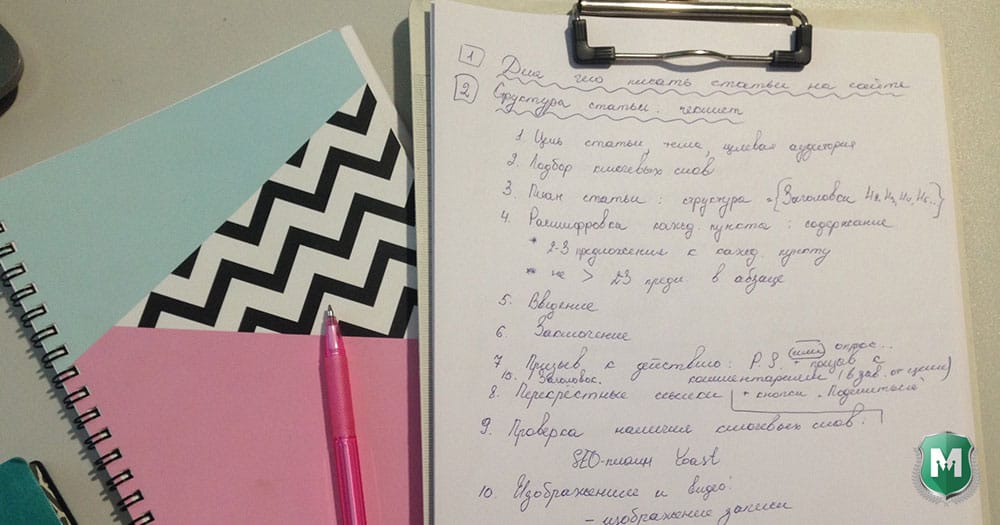 1 Для чего писать статьи на сайте
2 Структура статьи: чеклист
1. Цель статьи, тема, целевая аудитория
2. Подбор ключевых слов
3. План статьи: структура = {Заголовки H2, H3, H4, H5..}
4. Расшифровка кажд. пункта: содержание
* 2-3 предложения к кажд. пункту
* не > 23 предл. в абзаце
5. Введение
6. Заключение
опрос...
7 Призыв к действию: P.S. + призыв к
10. Заголовок. комментариям (в зав. от цели)
8. Перекрестные ссылки + кнопки "Поделиться"
9. Проверка наличия ключевых слов!
SEO-плагин Yoast
10. Изображение и видео:
- изображение записи
M